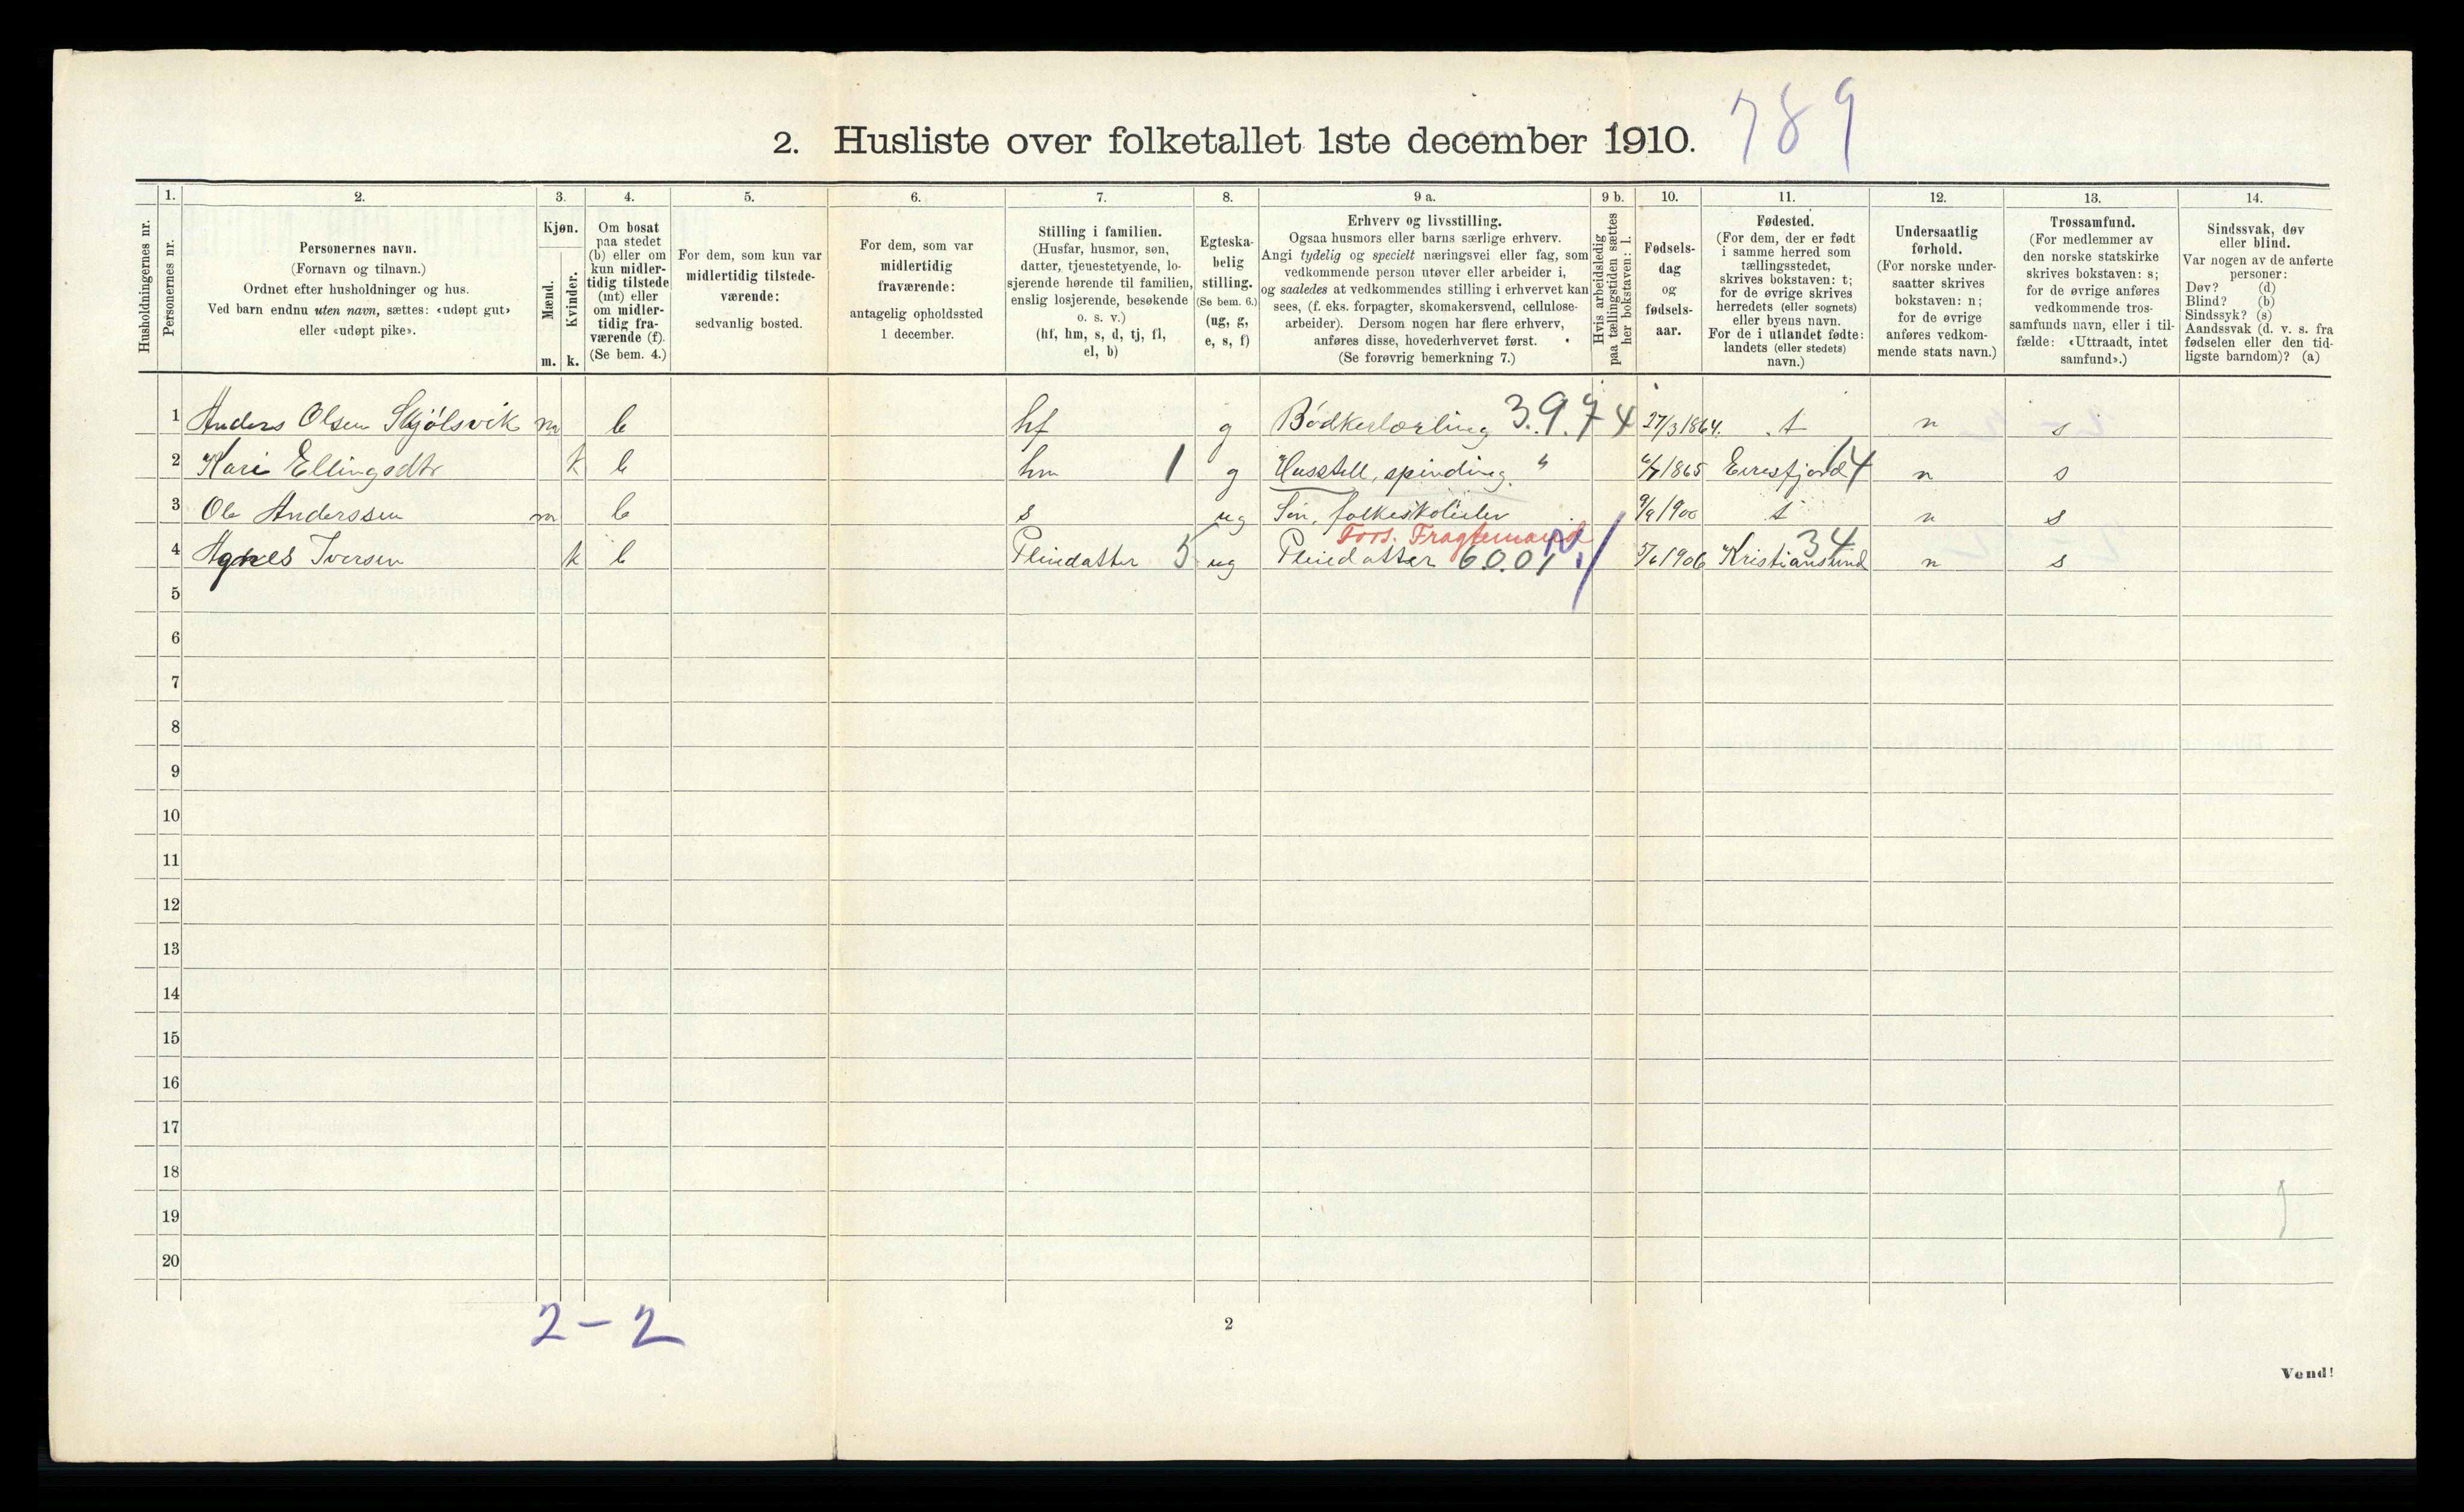 789
2. Husliste over folketallet 1ste december 1910.
Husholdningernes nr.
1.
Personernes nr.
2.
Personernes navn.
(Fornavn og tilnavn.)
Ordnet efter husholdninger og hus.
Ved barn endnu uten navn, sættes: «udøpt gut»
eller «udøpt pike».
3.
Kjøn.
Mænd.
Kvinder.
m. k.
4.
Om bosat
paa stedet
(b) eller om
kun midler-
tidig tilstede
(mt) eller
om midler-
tidig fra-
værende (f).
(Se bem. 4.)
5.
For dem, som kun var
midlertidig tilstede-
værende:
sedvanlig bosted.
6.
For dem, som var
midlertidig
fraværende:
antagelig opholdssted
1 december.
7.
Stilling i familien.
(Husfar, husmor, søn,
datter, tjenestetyende, lo-
sjerende hørende til familien,
enslig losjerende, besøkende
o. s. v.)
(hf, hm, s, d, tj, fl,
el, b)
8.
Egteska-
belig
stilling.
(Se bem. 6.)
(ug, g,
e, s, f)
9 a.
Erhverv og livsstilling.
Ogsaa husmors eller barns særlige erhverv.
Angi tydelig og specielt næringsvei eller fag, som
vedkommende person utøver eller arbeider i,
og saaledes at vedkommendes stilling i erhvervet kan
sees, (f. eks. forpagter, skomakersvend, cellulose-
arbeider). Dersom nogen har flere erhverv,
anføres disse, hovederhvervet først.
(Se forøvrig bemerkning 7.)
9 b.
Hvis arbeidsledig
paa tællingstiden sættes
her bokstaven: l.
10.
Fødsels-
dag
og
fødsels-
aar.
11.
Fødested.
(For dem, der er født
i samme herred som
tællingsstedet,
skrives bokstaven: t;
for de øvrige skrives
herredets (eller sognets)
eller byens navn.
For de i utlandet fødte:
landets (eller stedets)
navn.)
12.
Undersaatlig
forhold.
(For norske under-
saatter skrives
bokstaven: n;
for de øvrige
anføres vedkom-
mende stats navn.)
13.
Trossamfund.
(For medlemmer av
den norske statskirke
skrives bokstaven: s;
for de øvrige anføres
vedkommende tros-
samfunds navn, eller i til-
fælde: «Uttraadt, intet
samfund».)
14.
Sindssvak, døv
eller blind.
Var nogen av de anførte
personer:
Døv? (d)
Blind? (b)
Sindssyk? (s)
Aandssvak (d. v. s. fra
fødselen eller den tid-
ligste barndom)? (a)
1 Anders Olsen Skjølsvik m b hf g Bødkerlærling 3.9.74 27/3 1864. t n s
2 Kari Ellingsdtr k b hm 1 g Husstell, spinding " 1865 Eiresfjord 14 n s
3 Ole Anderssen m b s ug Søn, folkeskoleelev 9/9 1900 t n s
Fors. Fragtemand
4 Agnes Iversen k b Pleiedatter 5 ug Pleiedatter 60.01 5/6 1906 Kristiansund 34 n s
5
6
7
8
9
10
11
12
13
14
15
16
17
18
19
20
2-2
2
Vend!